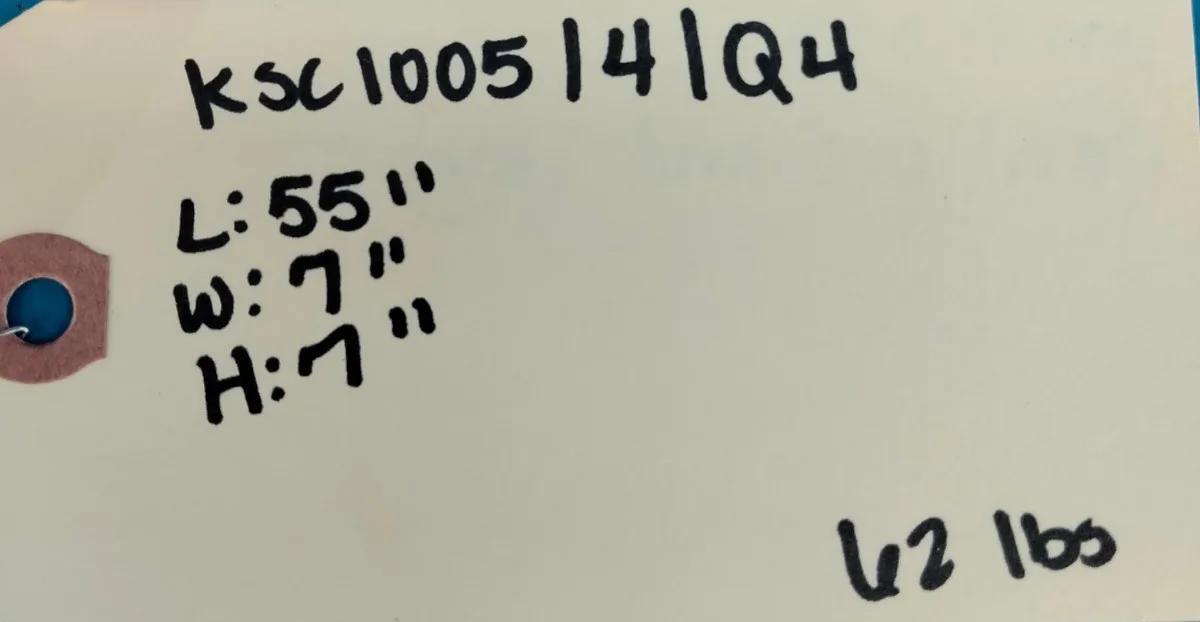 KSC1005/4/Q4
L: 55"
W: 7"
H: 7"
62 lbs